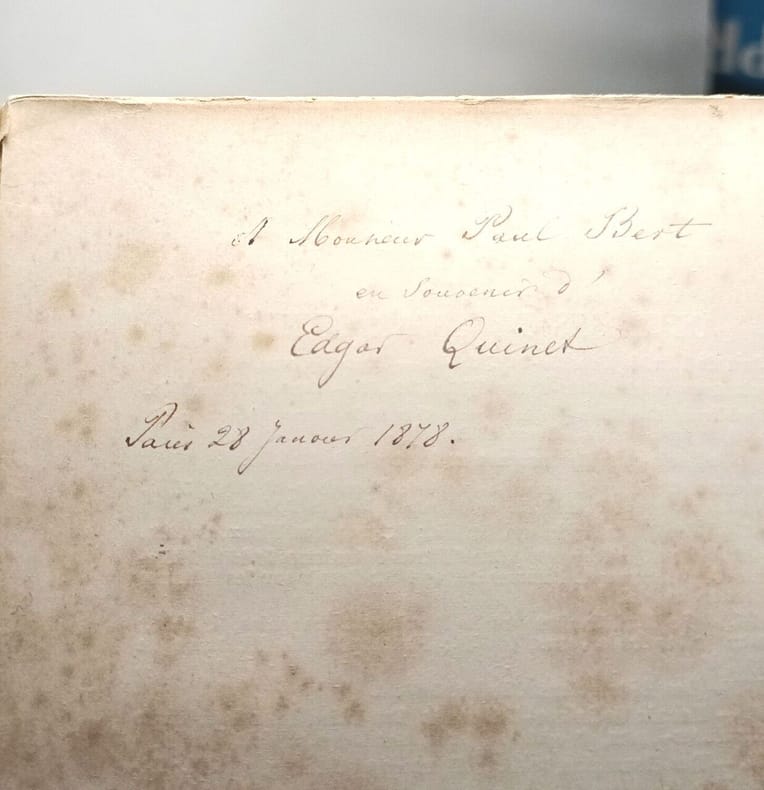 A Monsieur Paul Bert
en souvenir d'
Edgar Quinet
Paris 28 Janvier 1878.